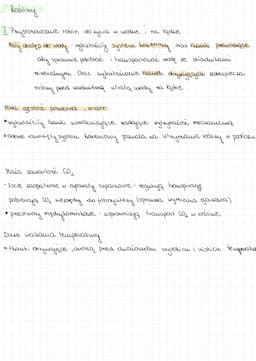 Rośliny
I Przystosowanie roślin do życia w wodzie i na lądzie
Mały dostęp do wody wykształciły system korzeniowy oraz tkanki przewodzące
aby sprawnie pobierać i transportować wodę ze składnikami
mineralnymi. Oraz wykształcenie tkanek okrywających zabezpiecza
rośliny przed nadmierną utratą wody na lądzie
Mała gęstość powietrza, wiatr
• wykształciły tkanki wzmacniające nadające wytrzymałość mechaniczną
• dobrze rozwinięty system korzeniowy pozwala na utrzymanie rośliny w podłożu
Mała zawartość CO₂
- liście zaopatrzone w aparaty szparkowe - regulują transpirację
pobierają CO₂ niezbędny do fotosyntezy (sprawna wymiana gazowa)
• przestwory międzykomórkowe - usprawniają transport CO₂ w roślinie
Duże wahania temperatury
• tkanki okrywające, chronią przed działaniem wysokich i niskich temperatur